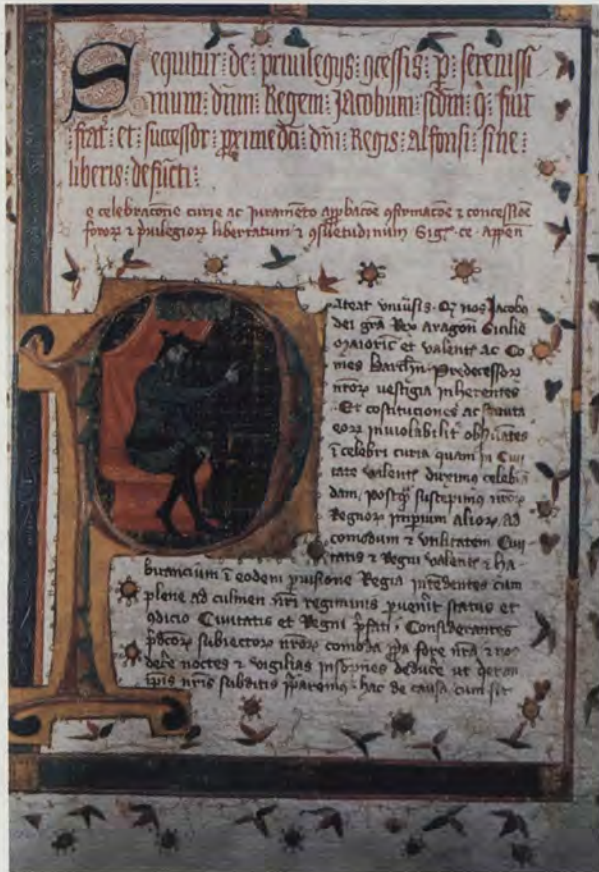 Sequitur: de: priuilegijs: ɔcessis: p: sereniſſi
mum: dnm: Regem: Jacobum: scdm: q: fuit
frat: et: successor: pxime dci: dni: Regis: alfonsi: sine:
liberis: defucti:
e celebracone curie ac Juramēto apꝓbacōe ɔfirmacōe ⁊ concessiōe
fororꝝ ⁊ priuilegiorꝝ libertatum ⁊ ɔsuetudinum
Pateat vniūsis ꝙ nos Jacobꝰ
dei grā Rex aragon Sicilie
Maioric et valent ac Co
mes Barchn Predecessorꝝ
nrorꝝ vestigia inherentes
Et costituciones ac statuta
eorꝝ inuiolabilit obs̄uātes
ī celebri curia quam in Ciui
tate valent duximꝰ celebrā
dam, postꝙ suscepimꝰ nrorꝝ
Regnorꝝ imperium aliorꝝ, ad
comodum ⁊ vtilitatem Ciui
tatis ⁊ Regni valent ⁊ ha
bitancium ī eodem ꝓuisione Regia intēdentes cum
plene ad culmen nri regiminis ꝑuenit status et
ɔdicio Ciuitatis et Regni p̄fati Considerantes
p̄dcorꝝ subiectorꝝ nrorꝝ comoda ꝓpa fore nrā ⁊ nos
decē noctes ⁊ vigilias insopnes deducē ut
ipis nris subditis p̄paremꝰ hac de causa cum sit